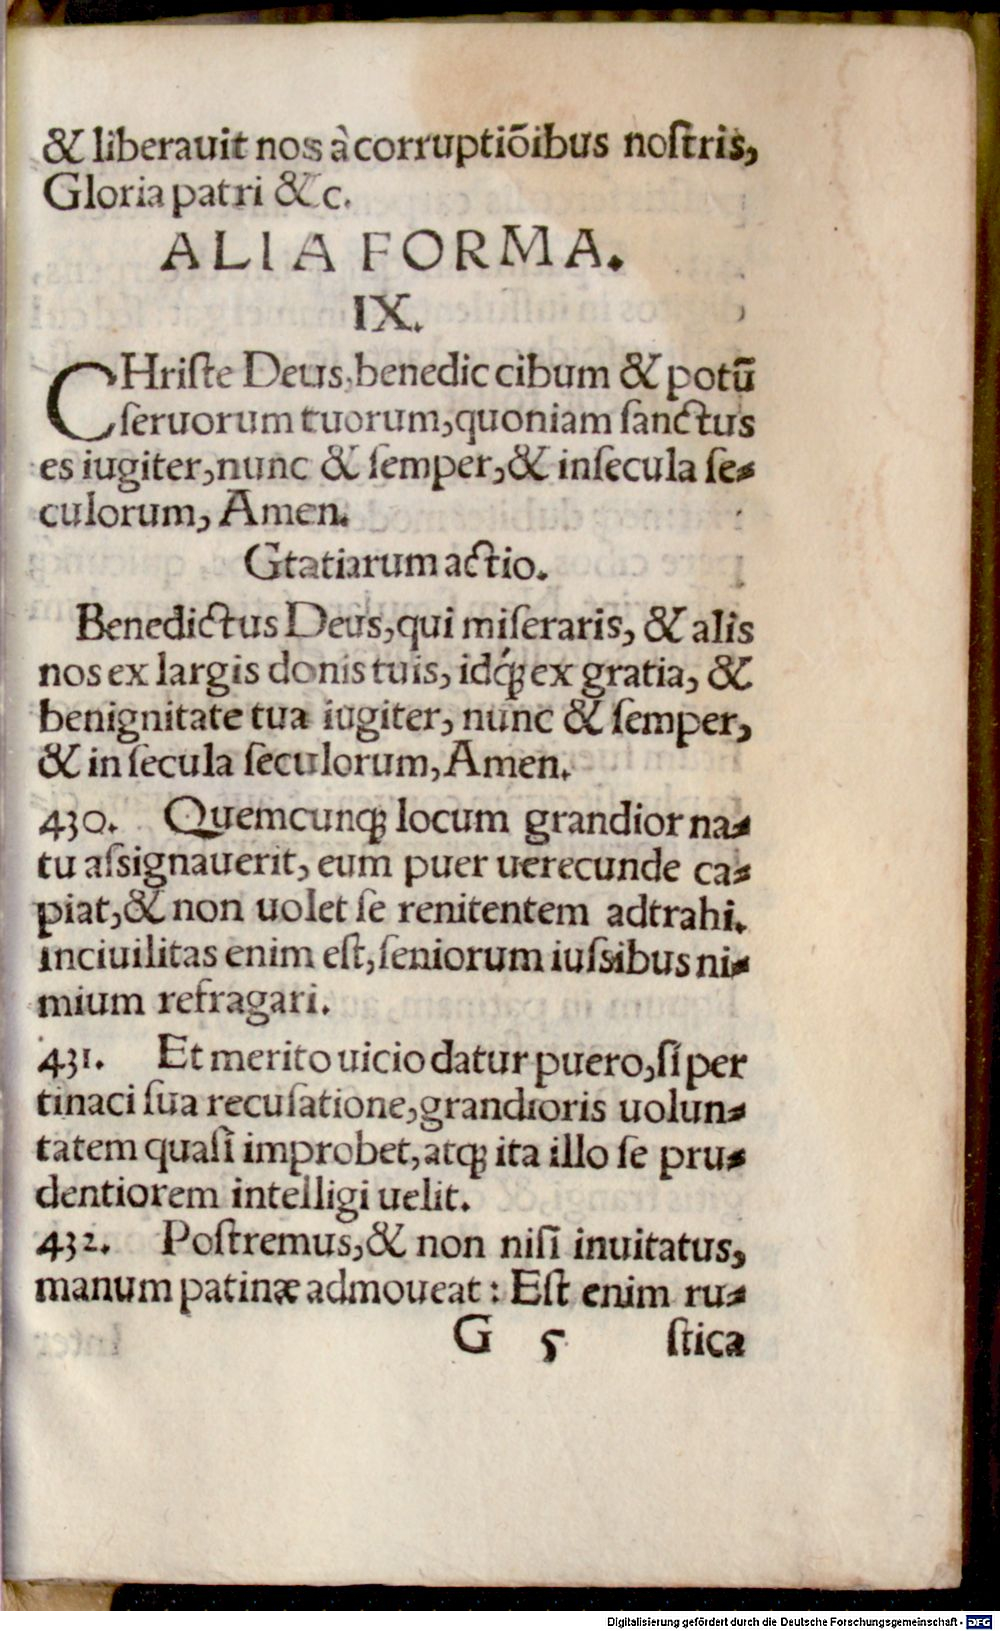 & liberauit nos à corruptiõibus noſtris,
Gloria patri &c.
ALIA FORMA.
IX.
CHriſte Deus, benedic cibum & potũ
ſeruorum tuorum, quoniam ſanctus
es iugiter, nunc & ſemper, & in ſecula ſe-
culorum, Amen.
Gtatiarum actio.
Benedictus Deus, qui miſeraris, & alis
nos ex largis donis tuis, idq́; ex gratia, &
benignitate tua iugiter, nunc & ſemper,
& in ſecula ſeculorum, Amen.
430. Quemcunq; locum grandior na-
tu aſsignauerit, eum puer uerecunde ca-
piat, & non uolet ſe renitentem adtrahi.
inciuilitas enim eſt, ſeniorum iuſsibus ni-
mium refragari.
431. Et merito uicio datur puero, ſi per
tinaci ſua recuſatione, grandioris uolun-
tatem quaſi improbet, atq; ita illo ſe pru-
dentiorem intelligi uelit.
432. Poſtremus, & non niſi inuitatus,
manum patinæ admoueat: Eſt enim ru-
G 5 ſtica
Digitalisierung gefördert durch die Deutsche Forschungsgemeinschaft - DFG